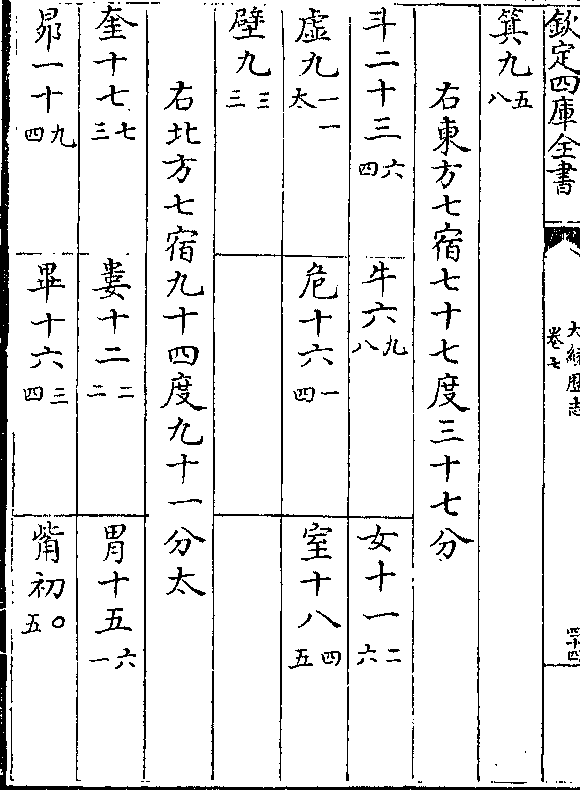 欽定四庫全書
大統歴志
卷七
箕九 五八
右東方七宿七十七度三十七分
斗二十三 六四 牛六 九八 女十一 二六
虛九 一一大 危十六 一四 室十八 四五
壁九 三三
右北方七宿九十四度九十一分太
奎十七 七三 婁十二 二二 胃十五 六一
昴一十 九四 畢十六 三四 觜初 〇五